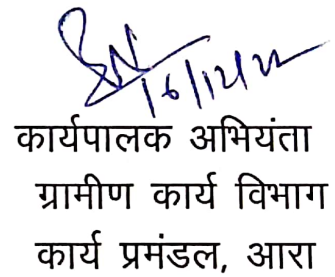 16/12/22
कार्यपालक अभियंता
ग्रामीण कार्य विभाग
कार्य प्रमंडल, आरा